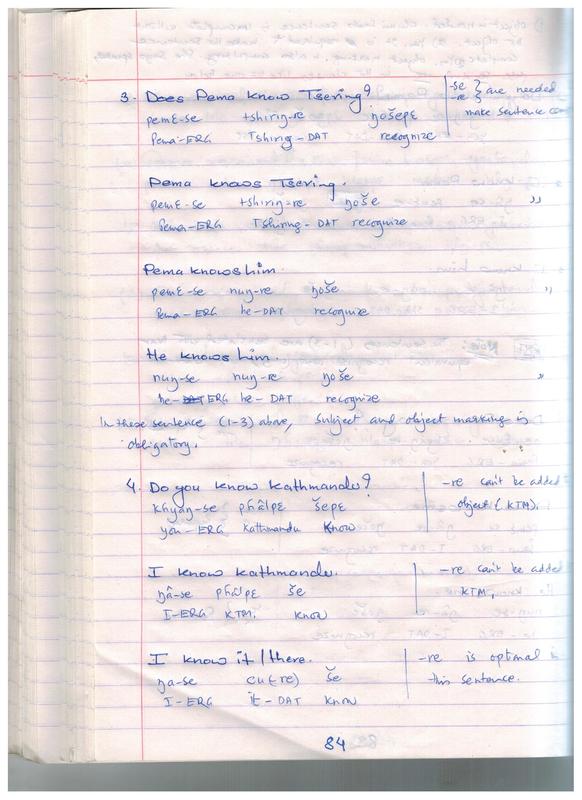 3. Does Pema know Tsering?
pemɛ-se tshiriŋ-re ŋošepɛ
Pema-ERG Tshirig-DAT recognize
-se
-re } are needed
make sentence
Pema knows Tsering.
pemɛ-se tshiriŋ-re ŋoše
Pema-ERG Tshiring-DAT recognize
"
Pema knows him.
pemɛ-se nuŋ-re ŋoše
Pema-ERG he-DAT recognize
"
He knows him.
nuŋ-se nuŋ-re ŋoše
he-ERG he-DAT recognize
"
In these sentence (1-3) above, subject and object marking is
obligatory.
4. Do you know Kathmandu?
khyaŋ-se phâlpɛ šepɛ
you-ERG Kathmandu Know
-re can't be added
object (KTM).
I know Kathmandu.
ŋâ-se phâlpɛ še
I-ERG KTM. know
-re can't be added
KTM,
I know it/there.
ŋa-se cu(re) še
I-ERG it-DAT know
-re is optional in
this sentence.
84